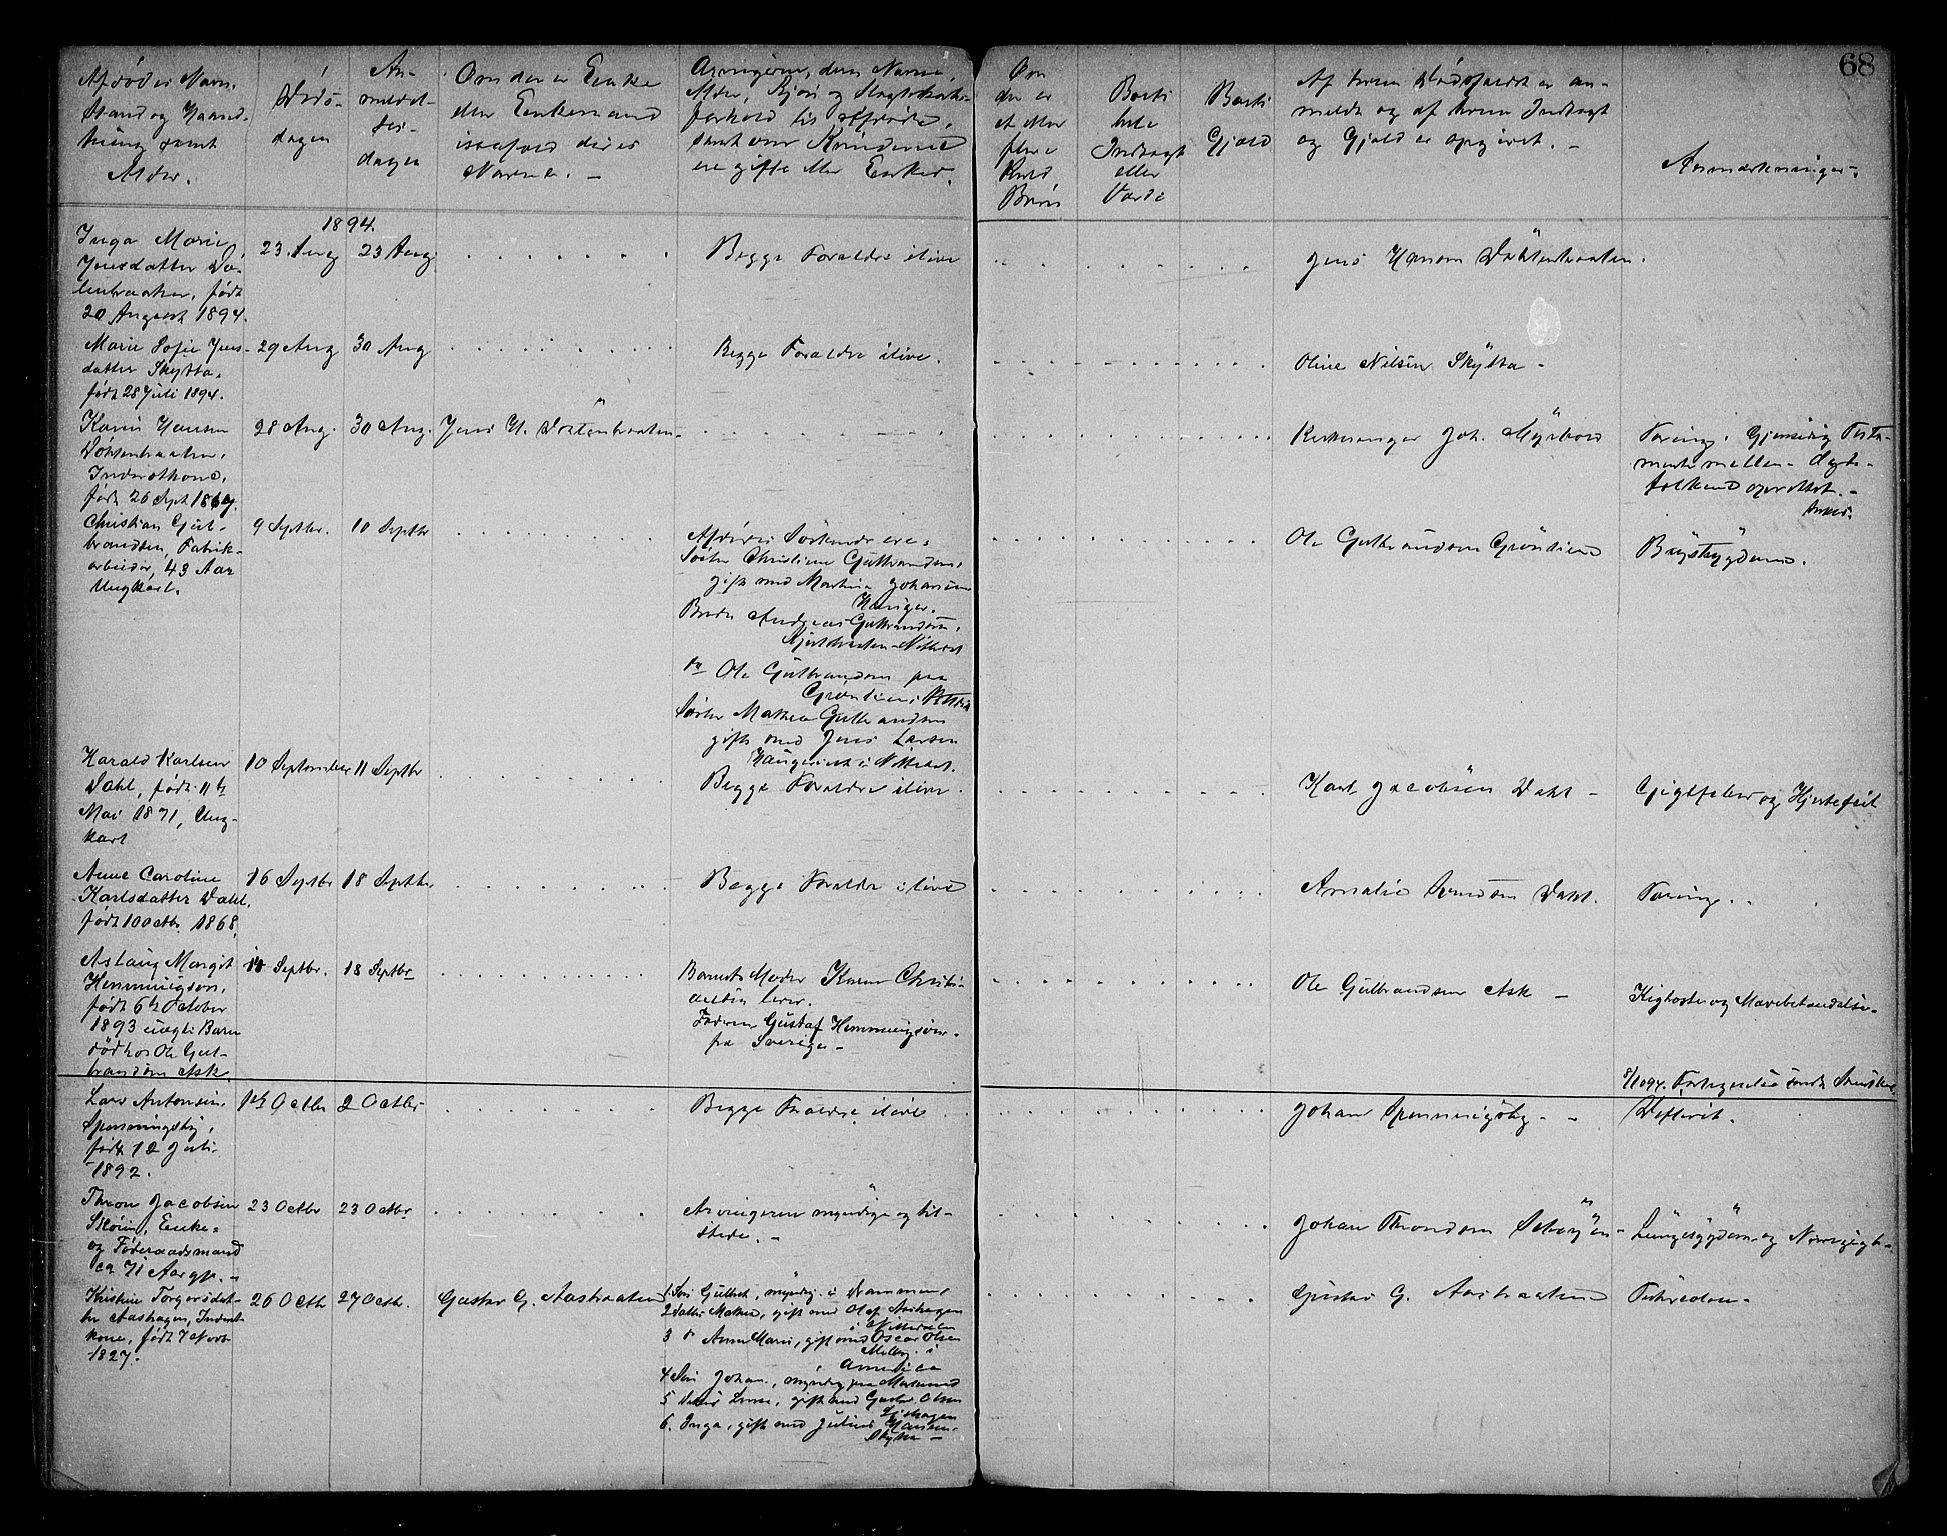 68
Afdødes Navn,
Stand og Haand-
tering samt
Alder.
Døds-
dagen
An-
meldel-
ses-
dagen
Om der er Enke
eller Enkemand
isaafald deres
Navne. -
Arvingerne, deres Navne,
Alder,
forhold til Afdøde,
samt om Kvinderne
ere gifte eller Enker.
Om
der er
et eller
flere
Kuld
Børn
Boets
hele
Indtægt
eller
Værdi
Boets
Gjæld
Af hvem Dødsfaldet er an-
meldt og af hvem Indtægt
og Gjæld er opgivet. -
Anmærkninger.
1894.
Inga Marie
Jensdatter
født
20 August 1894.
23 Aug
23 Aug.
Begge Forældre ilive
Jens Hansen
Marie Sofie Jens-
datter Skytta,
født 28 Juli 1894.
29 Aug
30 Aug
Begge Forældre ilive.
Oline Nilsen Skytta -
Karen Hansen
Inderstkone,
født 26 Sept 1869.
28 Aug.
30 Aug.
Jens H.
Kirkesanger Joh. Myrbord
Tæring. Gjensidig Testa-
mente mellem Ægte-
folkene oprettet. -
Christian Gul-
brandsen, Fabrik-
arbeider, 43 Aar
Ungkarl.
9 Septbr.
10 Septbr
Afdødes Søskende ere:
Søster Christine Gulbrandsen,
gift med Martin Johansen
Hauger.
Broder Andreas Gulbrandsen,
Nittedal
do Ole Gulbrandsen paa
Grønlien i Nittedal
Søster Mathea Gulbrandsen
gift med Jens Larsen
i Nittedal.
Ole Gulbrandsen Grønlien
Brystsygdom.
Harald Karlsen
Dahl, født 11te
Mai 1871, Ung-
karl
10 September
11 Septbr
Begge Forældre ilive.
Karl Jacobsen Dahl -
Gigtfeber og Hjertefeil
Anne Caroline
Karlsdatter Dahl,
født 10 Octbr. 1868.
16 Septbr
18 Septbr.
Begge Forældre ilive
Amalie Svendsen Dahl.
Tæring.
Aslaug Margit
Hemmingsen,
født 6te October
1893 uægte Barn
død hos Ole Gul-
brandsen Ask.
Septbr.
18 Septbr
Barnets Moder Karen Christi-
lever.
Faderen Gustaf Hemmingsen
fra Sverige -
Ole Gulbrandsen Ask -
Kighoste og Mavebetændelse -
8/10 94. Fortegnelse sendt
Lars Antonsen
Spenningsby,
født 12 Juli
1892.
1ste Octbr
2 Octbr
Begge Forældre ilive
Johan Spenningsby. -
Defterit.
Thron Jacobsen
Skøien, Enke-
og Føderaadsmand
ca 71 Aar gl. -
23 Octbr
23 Octbr
Arvingerne myndige og til-
stede. -
Johan Thronsen
Lungesygdom og
Kristine Torgersdat-
ter Aashagen, Inderst-
kone, født 7 Novbr
1827.
26 Octb
27 Octb.
Gustav G. Aasbraaten
1. Søn Gulbek, myndig, i Drammen
2 datter Mathea, gift med Olaf Aashagen
i Nittedalen
3 do Anne Marie, gift med Oscar Olsen
Melby i
America
4 Søn Johan, myndig, paa
5 Datter gift med Gustav Olsen
6. Inga, gift med Julius Hansen
Skytta -
Gustav G. Aasbraaten